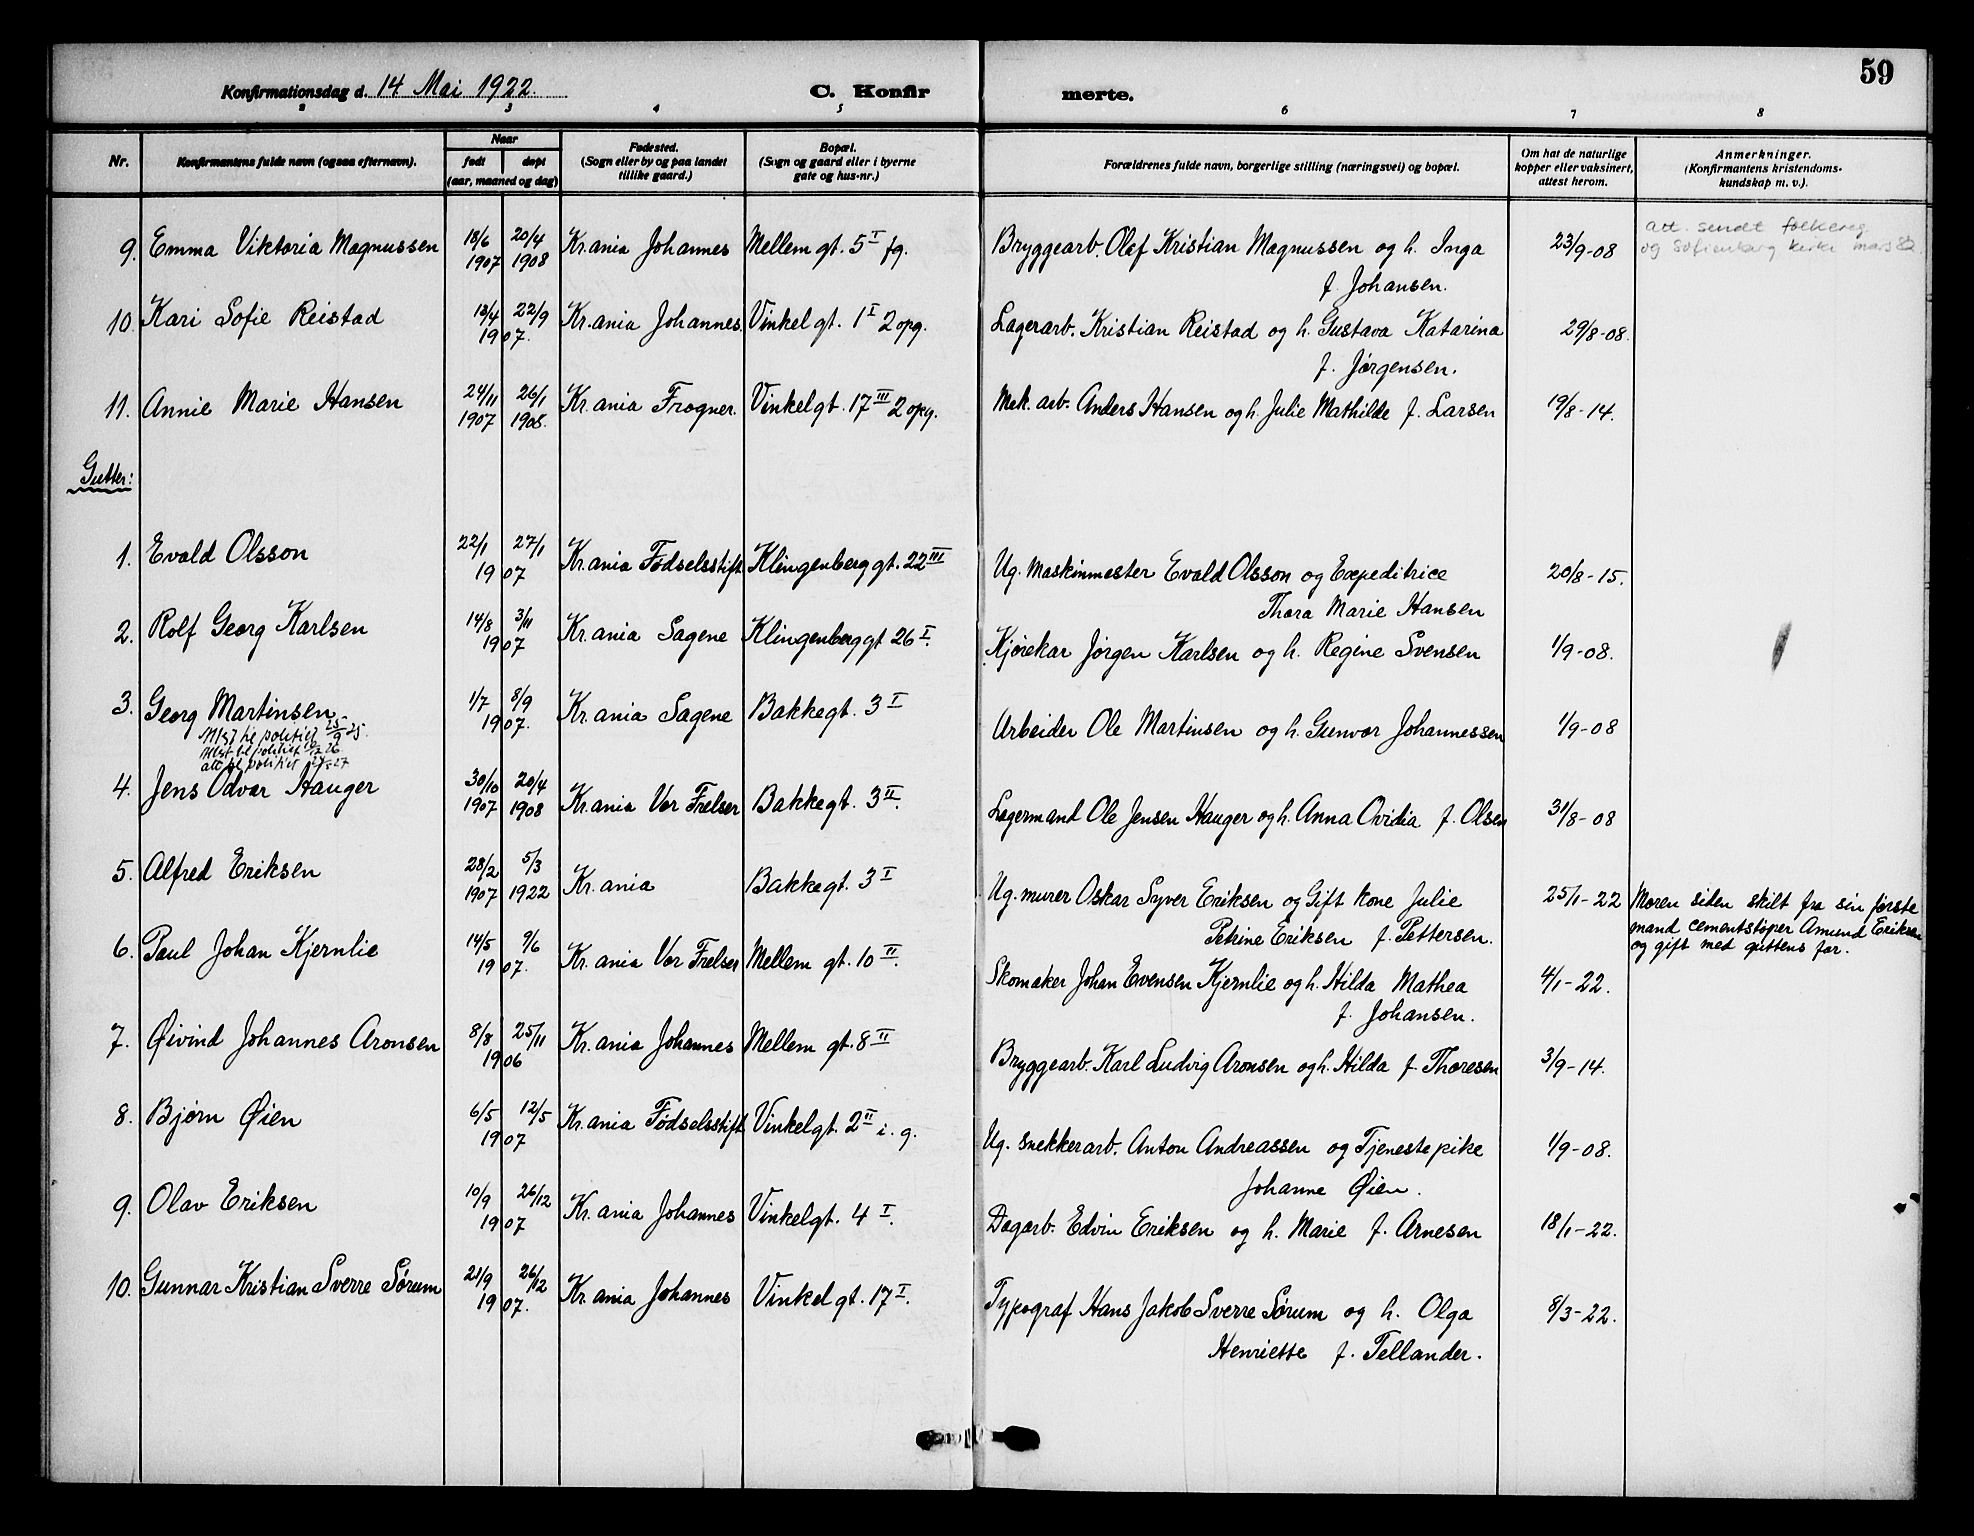 59
Konfirmationsdag d. 14 Mai 1922. C. Konfir merte.
2 3 4 5 6 7 8
Nr. Konfirmantens fulde navn (ogsaa efternavn). Naar født døpt (aar, maaned og dag) Fødested. (Sogn eller by og paa landet tillike gaard.) Bopæl. (Sogn og gaard eller i byerne gate og hus-nr.) Forældrenes fulde navn, borgerlige stilling (næringsvei) og bopæl. Om hat de naturlige kopper eller vaksinert, attest herom. Anmerkninger. (Konfirmantens kristendomskundskap m. v.).
9. Emma Viktoria Magnussen 18/6 1907 20/4 1908 Kr.ania Johannes Mellem gt. 5 I fg. Bryggearb. Olef Kristian Magnussen og h. Inga 23/9-08 att. sendt folkereg
f. Johansen. og Sofienberg kirke mars 82
10. Kari Sofie Reistad 13/4 22/9 1907. Kr.ania Johannes. Vinkel gt. 1 I 2 opg. Lagerarb. Kristian Reistad og h. Gustava Katarina 29/8-08.
f. Jørgensen.
11. Annie Marie Hansen 24/11 1907 26/1 1908. Kr.ania Frogner. Vinkelgt. 17 III 2 opg. Mek. arb. Anders Hansen og h. Julie Mathilde f. Larsen 19/8-14.
Gutter:
1. Evald Olsson 22/1 27/1 1907 Kr.ania Fødselsstift Klingenberggt. 22 III Ug. Maskinmester Evald Olsson og Expeditrice 20/8-15.
Thora Marie Hansen
2. Rolf Georg Karlsen 14/8 3/11 1907 Kr.ania Sagene Klingenberggt 26 I. Kjørekar Jørgen Karlsen og h. Regine Svensen 1/9-08.
3. Georg Martinsen 1/7 8/9 1907. Kr.ania Sagene Bakkegt. 3 I Arbeider Ole Martinsen og h. Gunvor Johannessen 1/9-08
til politiet
til politiet
att til politiet
4. Jens Odvar Hauger 30/10 1907 20/4 1908 Kr.ania Vor Frelser Bakkegt. 3 II. Lagermand Ole Jensen Hauger og h. Anna Ovidia f. Olsen 31/8-08
5. Alfred Eriksen 28/2 1907 5/3 1922 Kr.ania Bakkegt. 3 I Ug. murer Oskar Syver Eriksen og Gift kone Julie 25/1-22 Moren siden skilt fra sin første
Petrine Eriksen f. Pettersen. mand cementstøper Amund Eriksen
og gift med guttens far.
6. Paul Johan Kjernlie 14/5 9/6 1907. Kr.ania Vor Frelser Mellem gt. 10 II. Skomaker Johan Evensen Kjernlie og h. Hilda Mathea 4/1-22.
f. Johansen.
7. Øivind Johannes Aronsen 8/8 25/11 1906 Kr.ania Johannes Mellem gt. 8 II Bryggearb. Karl Ludvig Aronsen og h. Hilda f. Thoresen 3/9-14.
8. Bjørn Øien 6/5 12/5 1907 Kr.ania Fødselsstift Vinkelgt. 2 II i. g. Ug. snekkerarb. Anton Andreassen og Tjenestepike 1/9-08.
Johanne Øien.
9. Olav Eriksen 10/9 26/12 1907 Kr.ania Johannes Vinkelgt. 4 I. Dagarb. Edvin Eriksen og h. Marie f. Arnesen 18/1-22.
10. Gunnar Kristian Sverre Sørum 21/9 26/12 1907. Kr.ania Johannes Vinkel gt. 17 I. Typograf Hans Jakob Sverre Sørum og h. Olga 8/3-22.
Henriette f. Tellander.